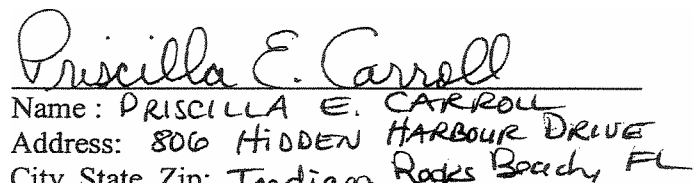 Priscilla E. Carroll
Name : PRISCILLA E. CARROLL
Address: 806 HIDDEN HARBOUR DRIVE
City, State, Zip: Indian Rocks Beach, FL